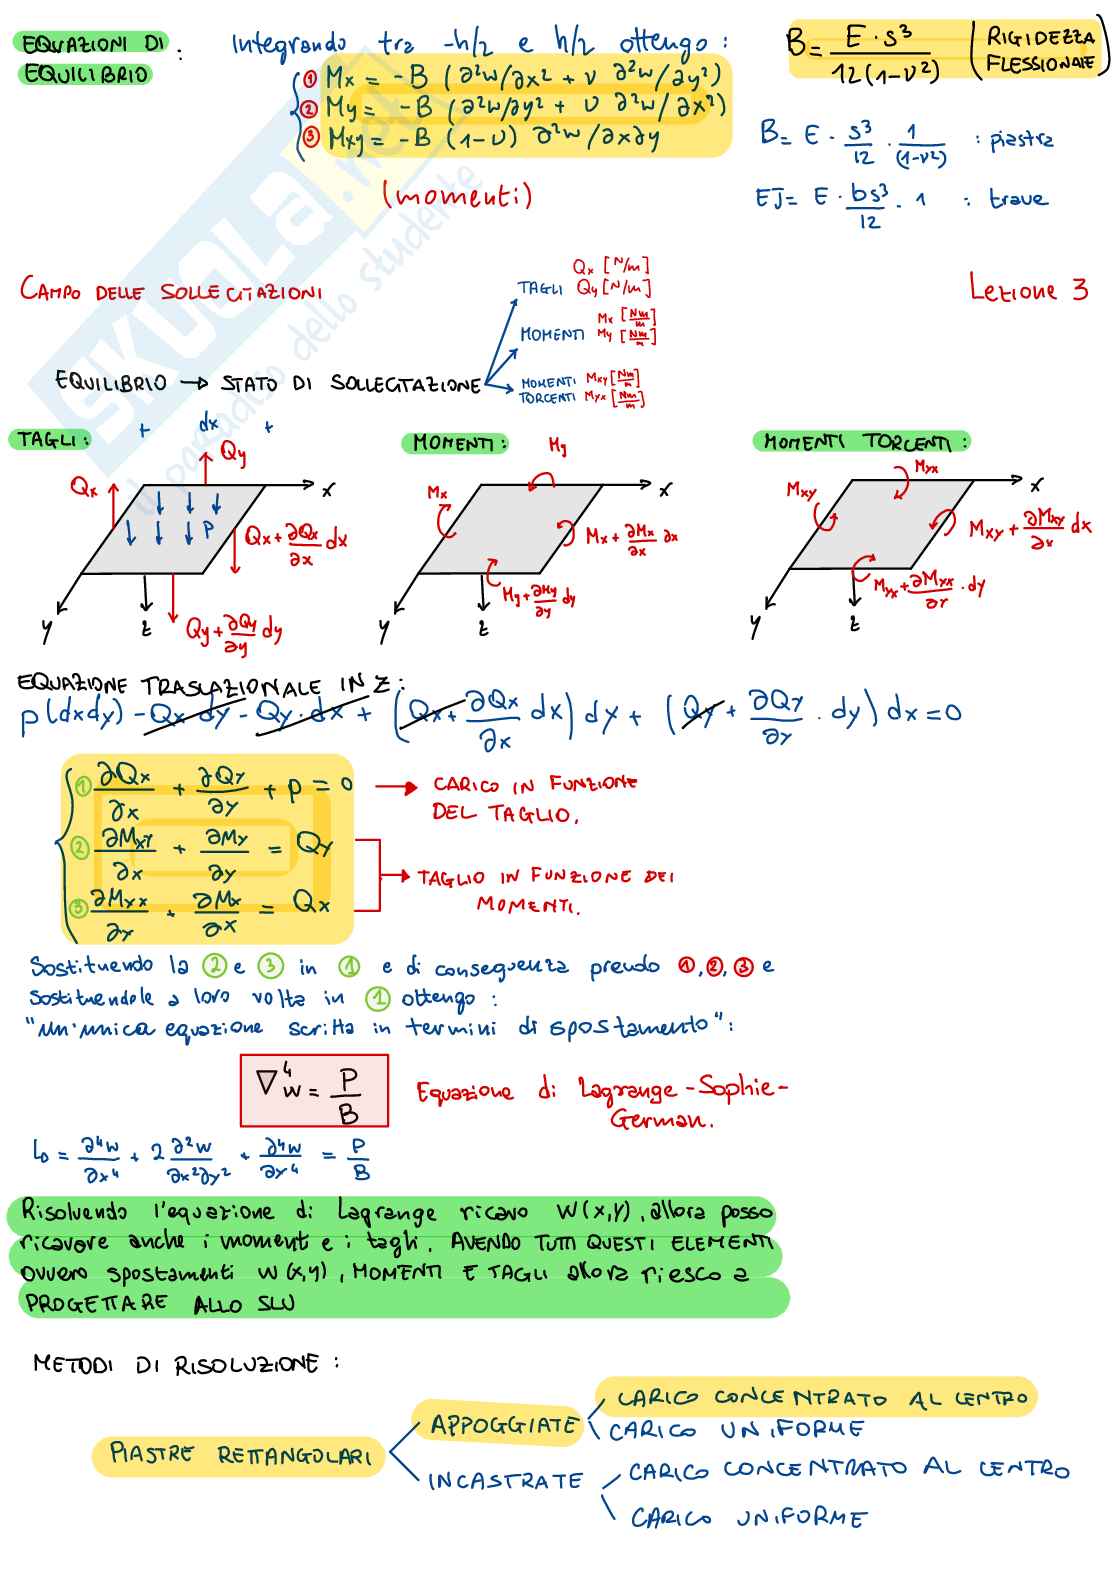 EQUAZIONI DI EQUILIBRIO : Integrando tra -h/2 e h/2 ottengo :
① Mx = -B (∂²w/∂x² + ν ∂²w/∂y²)
② My = -B (∂²w/∂y² + ν ∂²w/∂x²)
③ Mxy = -B (1-ν) ∂²w/∂x∂y
(momenti)
B = E·s³ / 12(1-ν²) (RIGIDEZZA FLESSIONALE)
B = E · s³/12 · 1/(1-ν²) : piastra
EJ = E · bs³/12 · 1 : trave
CAMPO DELLE SOLLECITAZIONI
Lezione 3
EQUILIBRIO → STATO DI SOLLECITAZIONE
TAGLI Qx [N/m] Qy [N/m]
MOMENTI Mx [Nm/m] My [Nm/m]
MOMENTI TORCENTI Mxy [Nm/m] Myx [Nm/m]
TAGLI :
+ dx +
Qy
Qx
x
P
Qx + ∂Qx/∂x dx
y
z
Qy + ∂Qy/∂y dy
MOMENTI :
My
Mx
x
Mx + ∂Mx/∂x ∂x
My + ∂My/∂y dy
y
z
MOMENTI TORCENTI :
Myx
Mxy
x
Mxy + ∂Mxy/∂x dx
Myx + ∂Myx/∂y · dy
y
z
EQUAZIONE TRASLAZIONALE IN Z :
p(dxdy) - Qx dy - Qy · dx + (Qx + ∂Qx/∂x dx) dy + (Qy + ∂Qy/∂y · dy) dx = 0
① ∂Qx/∂x + ∂Qy/∂y + p = 0 → CARICO IN FUNZIONE DEL TAGLIO.
② ∂Mxy/∂x + ∂My/∂y = Qy
③ ∂Myx/∂y + ∂Mx/∂x = Qx
→ TAGLIO IN FUNZIONE DEI MOMENTI.
Sostituendo la ② e ③ in ① e di conseguenza prendo ①,②,③ e
sostituendole a loro volta in ① ottengo :
"un'unica equazione scritta in termini di spostamento" :
∇⁴w = P/B
Equazione di Lagrange-Sophie-
German.
↳ = ∂⁴w/∂x⁴ + 2 ∂²w/∂x²∂y² + ∂⁴w/∂y⁴ = P/B
Risolvendo l'equazione di Lagrange ricavo W(x,y), allora posso
ricavare anche i momenti e i tagli. AVENDO TUTTI QUESTI ELEMENTI
ovvero spostamenti W(x,y), MOMENTI E TAGLI allora riesco a
PROGETTARE ALLO SLU
METODI DI RISOLUZIONE :
PIASTRE RETTANGOLARI
APPOGGIATE
CARICO CONCENTRATO AL CENTRO
CARICO UNIFORME
INCASTRATE
CARICO CONCENTRATO AL CENTRO
CARICO UNIFORME
SKUOLA.net
il paradiso dello studente